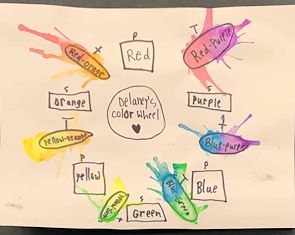 P
Red
T
Red-Orange
T
Red-Purple
S
Orange
S
Purple
Delaney's
color wheel
T
Yellow-Orange
T
Blue-Purple
P
Yellow
P
Blue
T
Blue-Green
S
Green